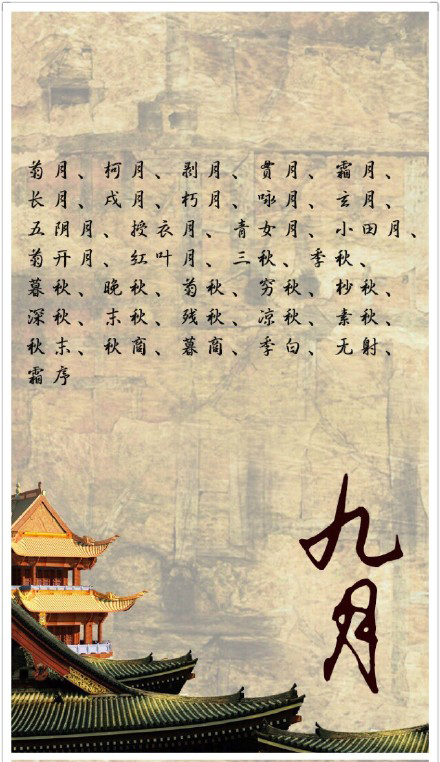 菊月、柯月、剥月、贯月、霜月、
长月、戌月、朽月、咏月、玄月、
五阴月、授衣月、青女月、小田月、
菊开月、红叶月、三秋、季秋、
暮秋、晚秋、菊秋、穷秋、杪秋、
深秋、末秋、残秋、凉秋、素秋、
秋末、秋商、暮商、季白、无射、
霜序
九月